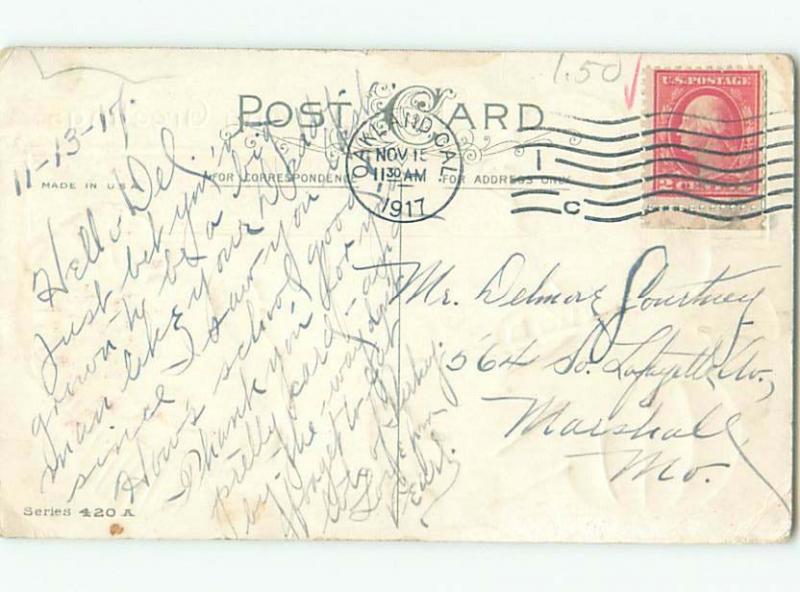 1.50
U.S. POSTAGE
2 CENTS 2
POST CARD
OAKLAND, CAL.
NOV 15
11 30 AM
1917
1
C
MADE IN U.S.A.
FOR CORRESPONDENCE
FOR ADDRESS ONLY
11-13-17.
Hello Del.
Just bet you're
grown to be a big
man like your Daddy
since I saw you
How's school good
I thank you for
pretty card - and
by-the-way don't
forget to eat
lots of turkey
for
Earl.
Mr. Delmore Courtney
564 So. Lafayette Av.,
Marshall
Mo.
Series 420 A